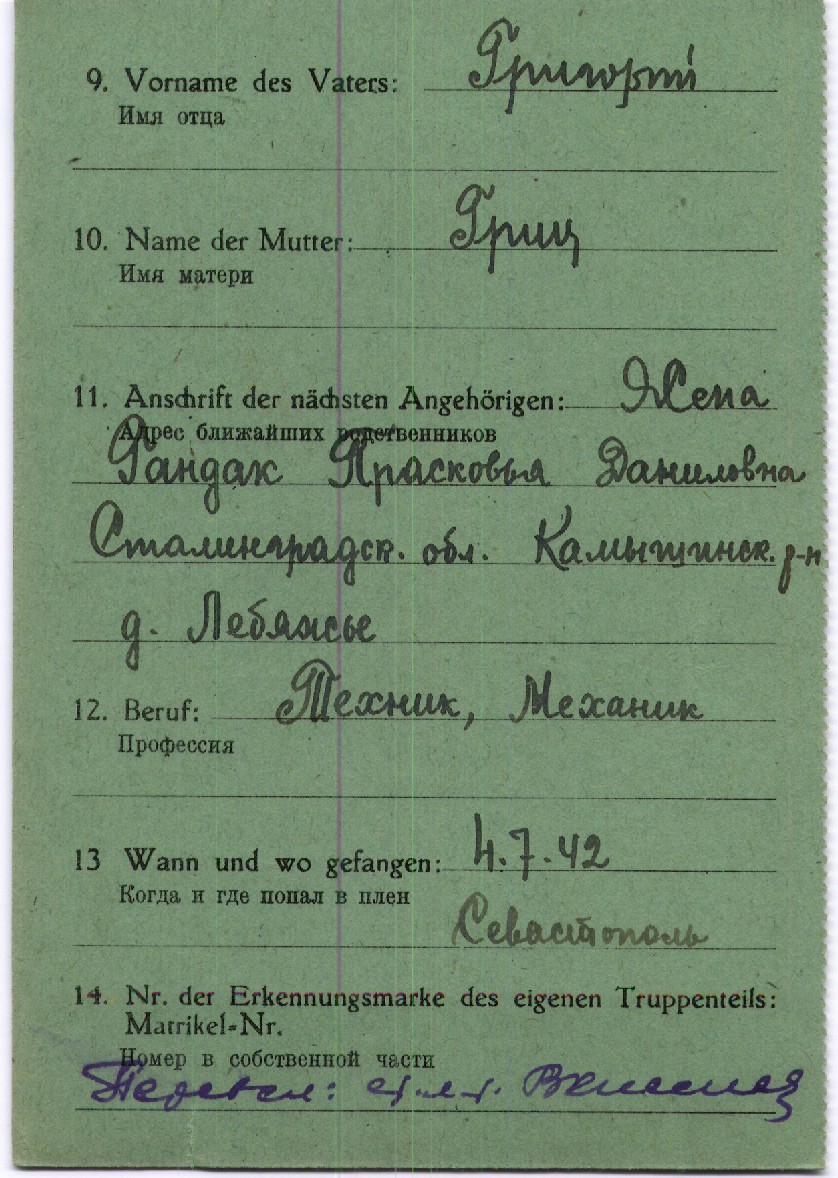 9. Vorname des Vaters: Григорій
Имя отца
10. Name der Mutter: Гриц
Имя матери
11. Anschrift der nächsten Angehörigen: Жена
Адрес ближайших родственников
Гандак Прасковья Даниловна
Сталинградск. обл. Камышинск. р-н
д. Лебяжье
12. Beruf: Техник, Механик
Профессия
13 Wann und wo gefangen: 4.7.42
Когда и где попал в плен
Севастополь
14. Nr. der Erkennungsmarke des eigenen Truppenteils:
Matrikel-Nr.
Номер в собственной части
Перевел: